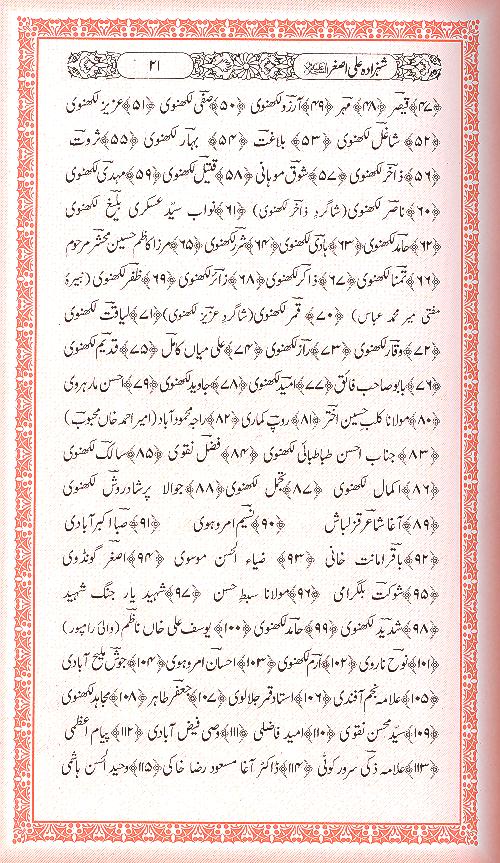 شہزادہ علی اصغر ۲۱
﴿۴۷﴾ قیصر ﴿۴۸﴾ مہر ﴿۴۹﴾ آرزو لکھنوی ﴿۵۰﴾ صفی لکھنوی ﴿۵۱﴾ عزیز لکھنوی
﴿۵۲﴾ شاغل لکھنوی ﴿۵۳﴾ بلاغت ﴿۵۴﴾ بہار لکھنوی ﴿۵۵﴾ ثروت
﴿۵۶﴾ ذاخر لکھنوی ﴿۵۷﴾ شوق موہانی ﴿۵۸﴾ قتیل لکھنوی ﴿۵۹﴾ مہدی لکھنوی
﴿۶۰﴾ ناصر لکھنوی (شاگرد ذاخر لکھنوی) ﴿۶۱﴾ نواب سیّد عسکری بلیغ لکھنوی
﴿۶۲﴾ حامد لکھنوی ﴿۶۳﴾ ہادی لکھنوی ﴿۶۴﴾ شرر لکھنوی ﴿۶۵﴾ مرزا کاظم حسین محشر مرحوم
﴿۶۶﴾ تمنا لکھنوی ﴿۶۷﴾ ذاکر لکھنوی ﴿۶۸﴾ زائر لکھنوی ﴿۶۹﴾ ظفر لکھنوی (نبیرۂ
مفتی میر محمد عباس) ﴿۷۰﴾ قمر لکھنوی (شاگرد عزیز لکھنوی) ﴿۷۱﴾ لیاقت لکھنوی
﴿۷۲﴾ وقار لکھنوی ﴿۷۳﴾ راز لکھنوی ﴿۷۴﴾ علی میاں کامل ﴿۷۵﴾ قدیم لکھنوی
﴿۷۶﴾ بابو صاحب فائق ﴿۷۷﴾ امید لکھنوی ﴿۷۸﴾ جاوید لکھنوی ﴿۷۹﴾ احسن مارہروی
﴿۸۰﴾ مولانا کلب حسین اختر ﴿۸۱﴾ روپ کماری ﴿۸۲﴾ راجہ محمود آباد (امیر احمد خاں محبوب)
﴿۸۳﴾ جناب احسن طباطبائی لکھنوی ﴿۸۴﴾ فضل نقوی ﴿۸۵﴾ سالک لکھنوی
﴿۸۶﴾ اکمال لکھنوی ﴿۸۷﴾ تجمل لکھنوی ﴿۸۸﴾ جوالا پرشاد روش لکھنوی
﴿۸۹﴾ آغا شاعر قزلباش ﴿۹۰﴾ نسیم امروہوی ﴿۹۱﴾ صبا اکبر آبادی
﴿۹۲﴾ باقر امانت خانی ﴿۹۳﴾ ضیاء الحسن موسوی ﴿۹۴﴾ اصغر گونڈوی
﴿۹۵﴾ شوکت بلگرامی ﴿۹۶﴾ مولانا سبط حسن ﴿۹۷﴾ شہید یار جنگ شہید
﴿۹۸﴾ شدید لکھنوی ﴿۹۹﴾ حامد لکھنوی ﴿۱۰۰﴾ یوسف علی خاں ناظم (والیٔ رامپور)
﴿۱۰۱﴾ نوح ناروی ﴿۱۰۲﴾ ارم لکھنوی ﴿۱۰۳﴾ احسان امروہوی ﴿۱۰۴﴾ جوش ملیح آبادی
﴿۱۰۵﴾ علامہ نجم آفندی ﴿۱۰۶﴾ استاد قمر جلالوی ﴿۱۰۷﴾ جعفر طاہر ﴿۱۰۸﴾ مجاہد لکھنوی
﴿۱۰۹﴾ سیّد محسن نقوی ﴿۱۱۰﴾ امید فاضلی ﴿۱۱۱﴾ وصی فیض آبادی ﴿۱۱۲﴾ پیام اعظمی
﴿۱۱۳﴾ علامہ ذکی سرور کوٹی ﴿۱۱۴﴾ ڈاکٹر آغا مسعود رضا خاکی ﴿۱۱۵﴾ وحید الحسن ہاشمی